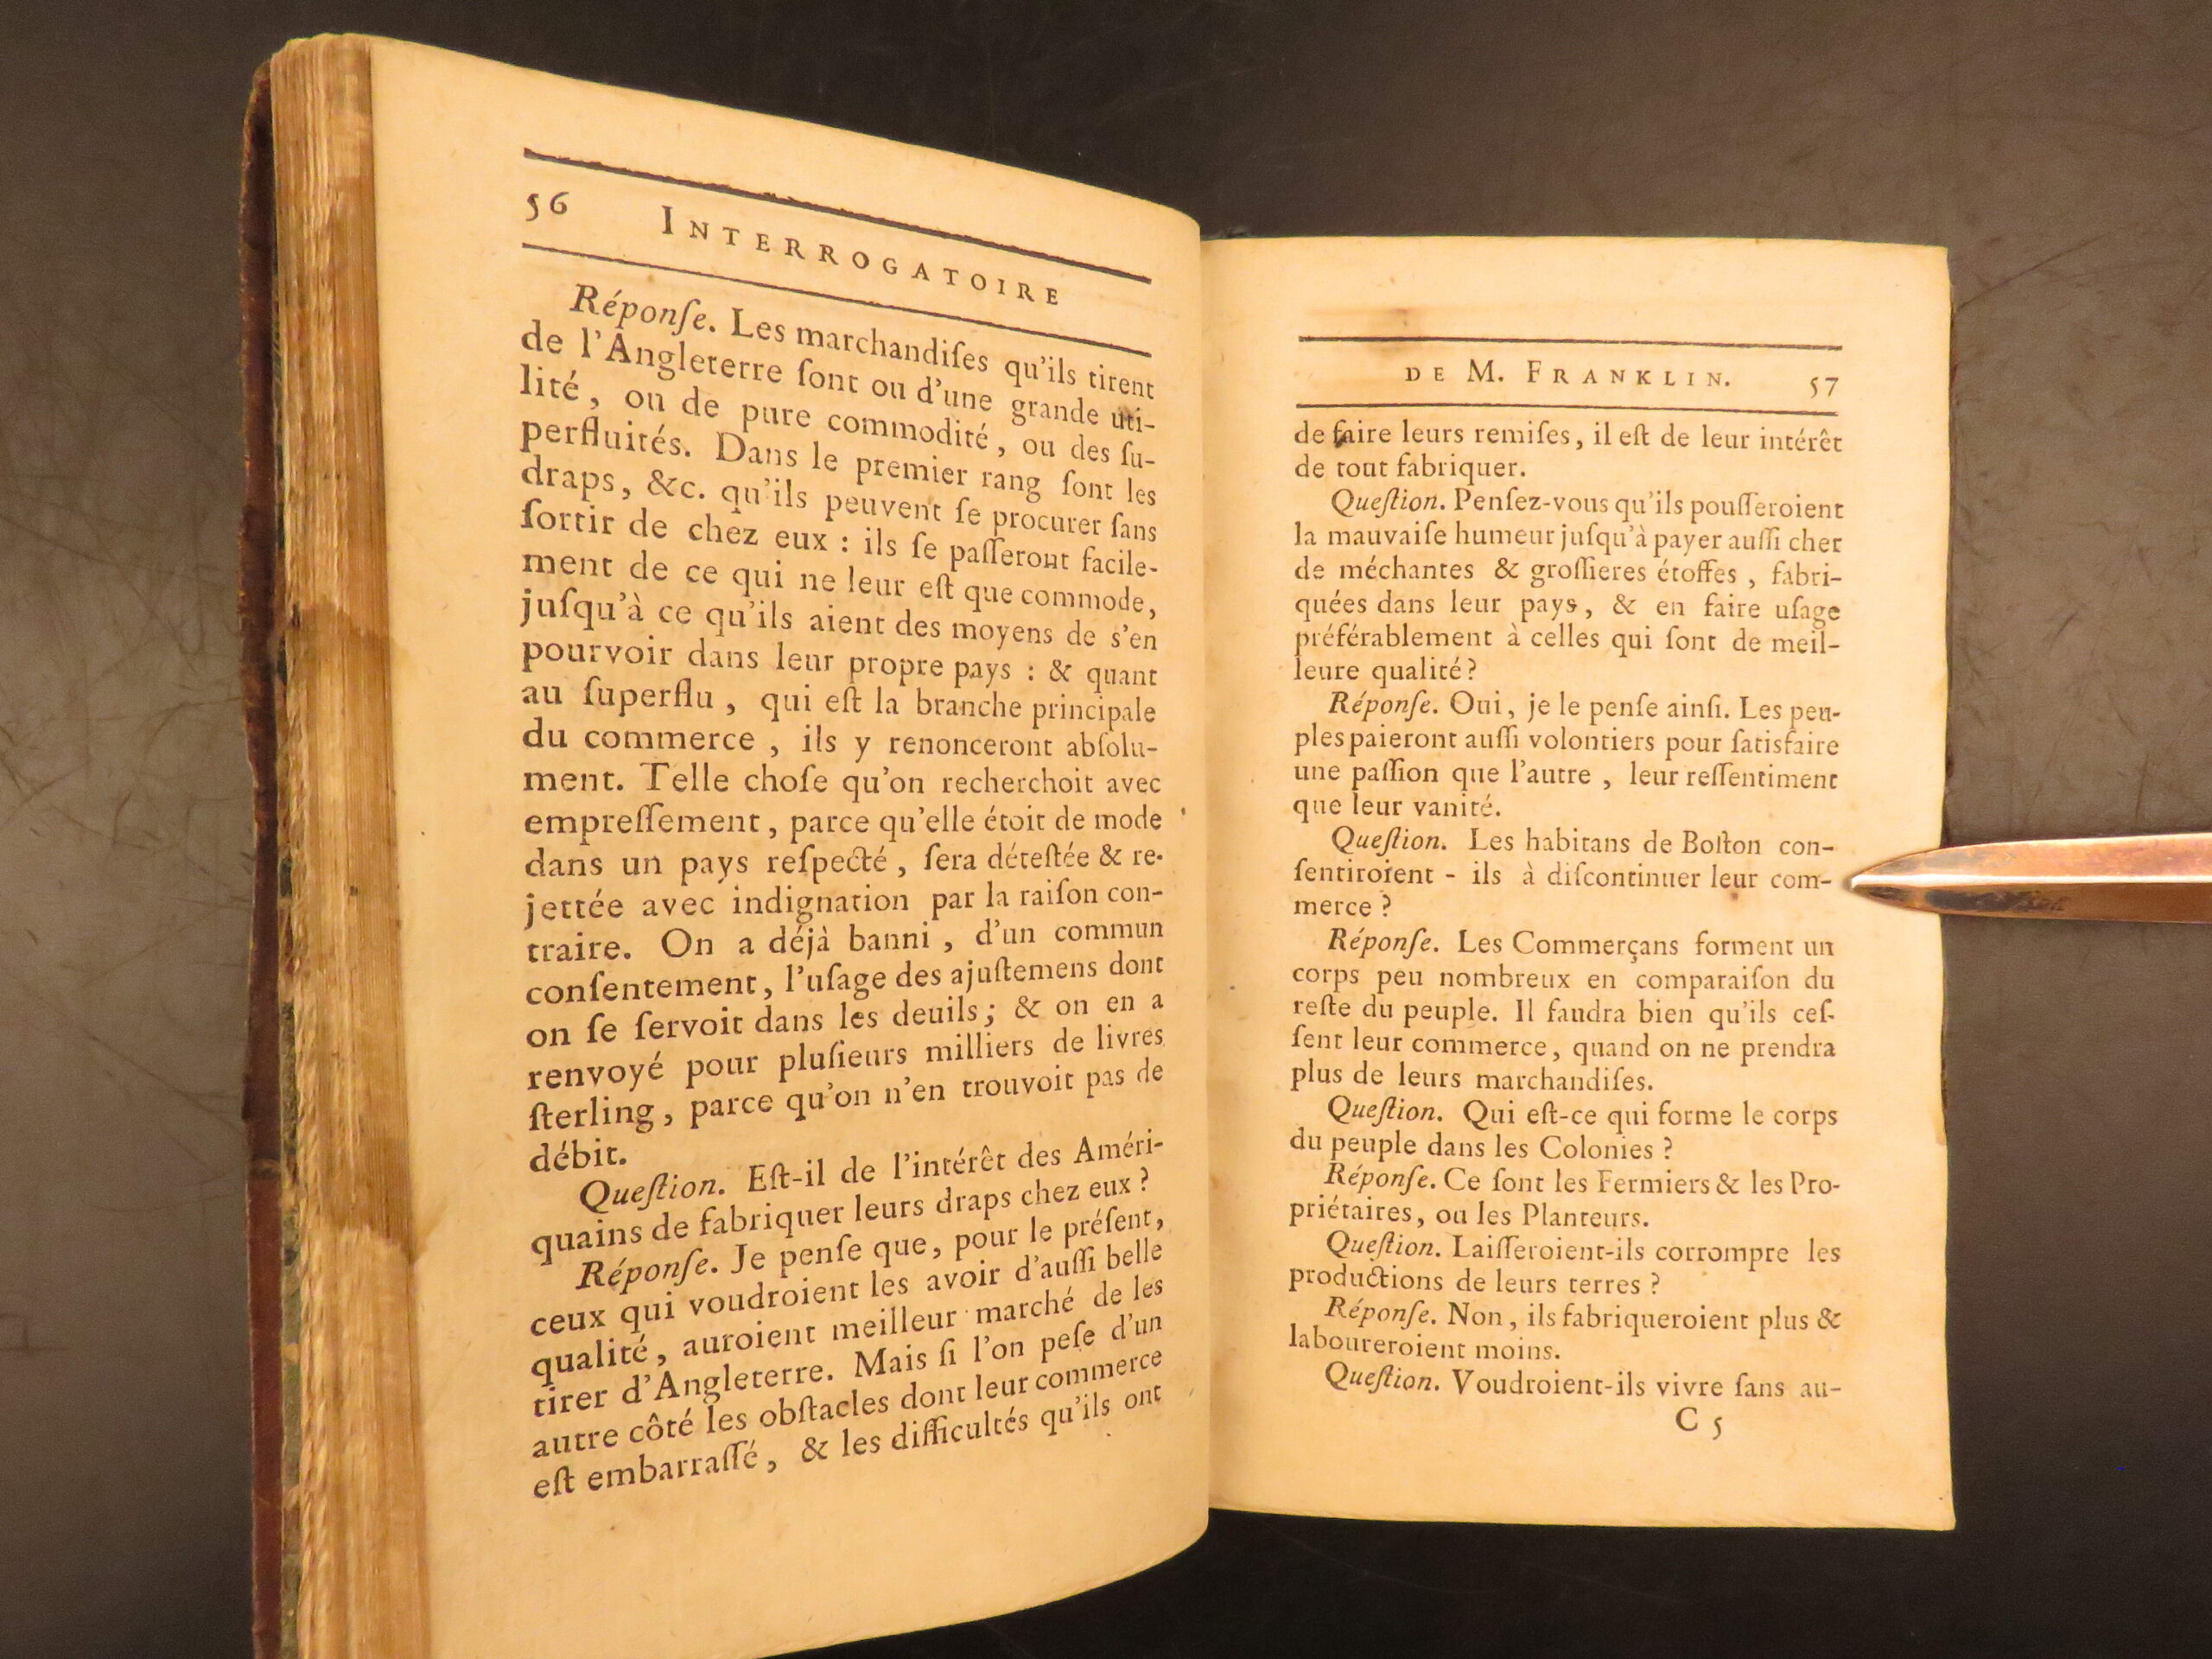 56 INTERROGATOIRE
Réponſe. Les marchandiſes qu'ils tirent
de l'Angleterre ſont ou d'une grande uti-
lité, ou de pure commodité, ou des ſu-
perfluités. Dans le premier rang ſont les
draps, &c. qu'ils peuvent ſe procurer ſans
ſortir de chez eux : ils ſe paſſeront facile-
ment de ce qui ne leur eſt que commode,
juſqu'à ce qu'ils aient des moyens de s'en
pourvoir dans leur propre pays : & quant
au ſuperflu, qui eſt la branche principale
du commerce, ils y renonceront abſolu-
ment. Telle choſe qu'on recherchoit avec
empreſſement, parce qu'elle étoit de mode
dans un pays reſpecté, ſera déteſtée & re-
jettée avec indignation par la raiſon con-
traire. On a déjà banni, d'un commun
conſentement, l'uſage des ajuſtemens dont
on ſe ſervoit dans les deuils; & on en a
renvoyé pour pluſieurs milliers de livres
ſterling, parce qu'on n'en trouvoit pas de
débit.
Queſtion. Eſt-il de l'intérêt des Améri-
quains de fabriquer leurs draps chez eux ?
Réponſe. Je penſe que, pour le préſent,
ceux qui voudroient les avoir d'auſſi belle
qualité, auroient meilleur marché de les
tirer d'Angleterre. Mais ſi l'on peſe d'un
autre côté les obſtacles dont leur commerce
eſt embarraſſé, & les difficultés qu'ils ont
DE M. FRANKLIN. 57
de faire leurs remiſes, il eſt de leur intérêt
de tout fabriquer.
Queſtion. Penſez-vous qu'ils pouſſeroient
la mauvaiſe humeur juſqu'à payer auſſi cher
de méchantes & groſſieres étoffes, fabri-
quées dans leur pays, & en faire uſage
préférablement à celles qui ſont de meil-
leure qualité?
Réponſe. Oui, je le penſe ainſi. Les peu-
ples paieront auſſi volontiers pour ſatisfaire
une paſſion que l'autre, leur reſſentiment
que leur vanité.
Queſtion. Les habitans de Boſton con-
ſentiroient - ils à diſcontinuer leur com-
merce ?
Réponſe. Les Commerçans forment un
corps peu nombreux en comparaiſon du
reſte du peuple. Il faudra bien qu'ils ceſ-
ſent leur commerce, quand on ne prendra
plus de leurs marchandiſes.
Queſtion. Qui eſt-ce qui forme le corps
du peuple dans les Colonies ?
Réponſe. Ce ſont les Fermiers & les Pro-
priétaires, ou les Planteurs.
Queſtion. Laiſſeroient-ils corrompre les
productions de leurs terres ?
Réponſe. Non, ils fabriqueroient plus &
laboureroient moins.
Queſtion. Voudroient-ils vivre ſans au-
C 5